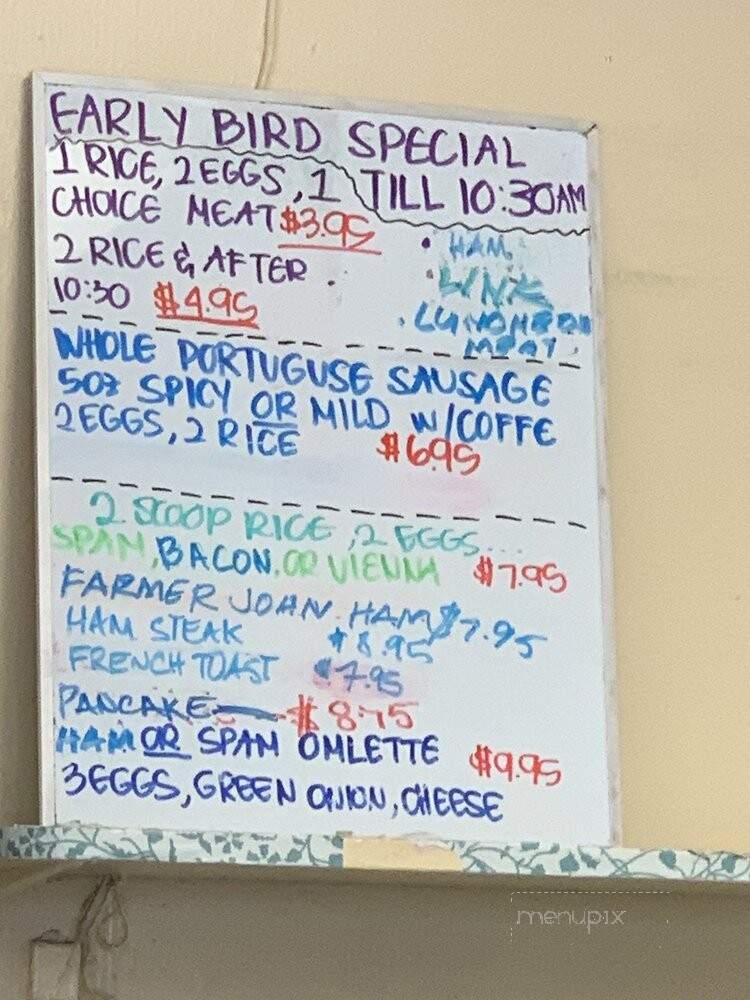 EARLY BIRD SPECIAL
1 RICE, 2 EGGS, 1 TILL 10:30AM
CHOICE MEAT $3.95
• HAM
2 RICE & AFTER
• LINK
10:30 $4.95
• LUNCHEON
MEAT
WHOLE PORTUGUSE SAUSAGE
5OZ SPICY OR MILD W/COFFE
2 EGGS, 2 RICE $6.95
2 SCOOP RICE, 2 EGGS...
SPAM, BACON, OR VIENNA $7.95
FARMER JOHN HAM $7.95
HAM STEAK $8.95
FRENCH TOAST $7.95
PANCAKE — $8.75
HAM OR SPAM OMLETTE $9.95
3 EGGS, GREEN ONION, CHEESE
menupix